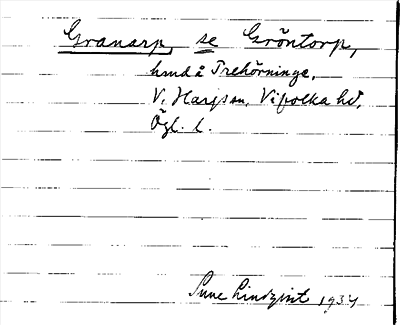 Granarp, se Gröntorp,
hmd å Trehörninge,
V. Harg sn, Vifolka hd,
Ögl. l.
Sune Lindqvist 1934